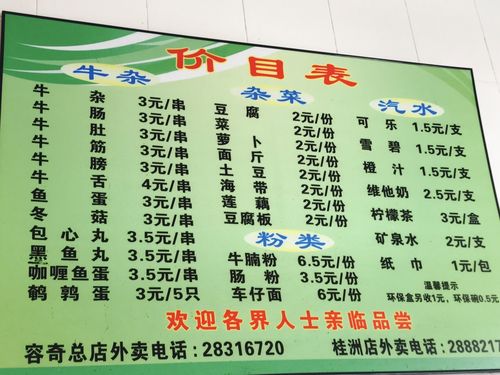 价目表
牛杂
牛杂 3元/串
牛肠 3元/串
牛肚 3元/串
牛筋 3元/串
牛膀 3元/串
牛舌 4元/串
鱼蛋 3元/串
冬菇 3元/串
包心丸 3.5元/串
墨鱼丸 3.5元/串
咖喱鱼蛋 3.5元/串
鹌鹑蛋 3元/5只
杂菜
豆腐 2元/份
菜 2元/份
萝卜 2元/份
面斤 2元/份
土豆 2元/份
海带 2元/份
莲藕 2元/份
豆腐板 2元/份
粉类
牛腩粉 6.5元/份
肠粉 3.5元/份
车仔面 6元/份
汽水
可乐 1.5元/支
雪碧 1.5元/支
橙汁 1.5元/支
维他奶 2.5元/支
柠檬茶 3元/盒
矿泉水 2元/支
纸巾 1元/包
温馨提示
环保盒另收1元，环保碗0.5元
欢迎各界人士亲临品尝
容奇总店外卖电话：28316720
桂洲店外卖电话：2888217